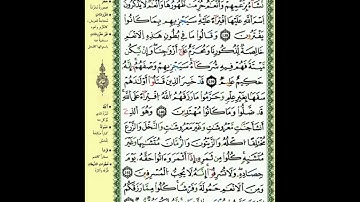 نَّشَآءُ بِزَعْمِهِمْ وَأَنْعَٰمٌ حُرِّمَتْ ظُهُورُهَا وَأَنْعَٰمٌ لَّا يَذْكُرُونَ
ٱسْمَ ٱللَّهِ عَلَيْهَا ٱفْتِرَآءً عَلَيْهِ سَيَجْزِيهِم بِمَا كَانُوا۟
يَفْتَرُونَ ١٣٨ وَقَالُوا۟ مَا فِى بُطُونِ هَٰذِهِ ٱلْأَنْعَٰمِ
خَالِصَةٌ لِّذُكُورِنَا وَمُحَرَّمٌ عَلَىٰٓ أَزْوَٰجِنَا وَإِن يَكُن
مَّيْتَةً فَهُمْ فِيهِ شُرَكَآءُ سَيَجْزِيهِمْ وَصْفَهُمْ إِنَّهُۥ
حَكِيمٌ عَلِيمٌ ١٣٩ قَدْ خَسِرَ ٱلَّذِينَ قَتَلُوٓا۟ أَوْلَٰدَهُمْ
سَفَهًۢا بِغَيْرِ عِلْمٍ وَحَرَّمُوا۟ مَا رَزَقَهُمُ ٱللَّهُ ٱفْتِرَآءً عَلَى ٱللَّهِ
قَدْ ضَلُّوا۟ وَمَا كَانُوا۟ مُهْتَدِينَ ١٤٠ وَهُوَ ٱلَّذِىٓ
أَنشَأَ جَنَّٰتٍ مَّعْرُوشَٰتٍ وَغَيْرَ مَعْرُوشَٰتٍ وَٱلنَّخْلَ وَٱلزَّرْعَ
مُخْتَلِفًا أُكُلُهُۥ وَٱلزَّيْتُونَ وَٱلرُّمَّانَ مُتَشَٰبِهًا وَغَيْرَ
مُتَشَٰبِهٍ كُلُوا۟ مِن ثَمَرِهِۦٓ إِذَآ أَثْمَرَ وَءَاتُوا۟ حَقَّهُۥ يَوْمَ
حَصَادِهِۦ وَلَا تُسْرِفُوٓا۟ إِنَّهُۥ لَا يُحِبُّ ٱلْمُسْرِفِينَ ١٤١
وَمِنَ ٱلْأَنْعَٰمِ حَمُولَةً وَفَرْشًا كُلُوا۟ مِمَّا رَزَقَكُمُ